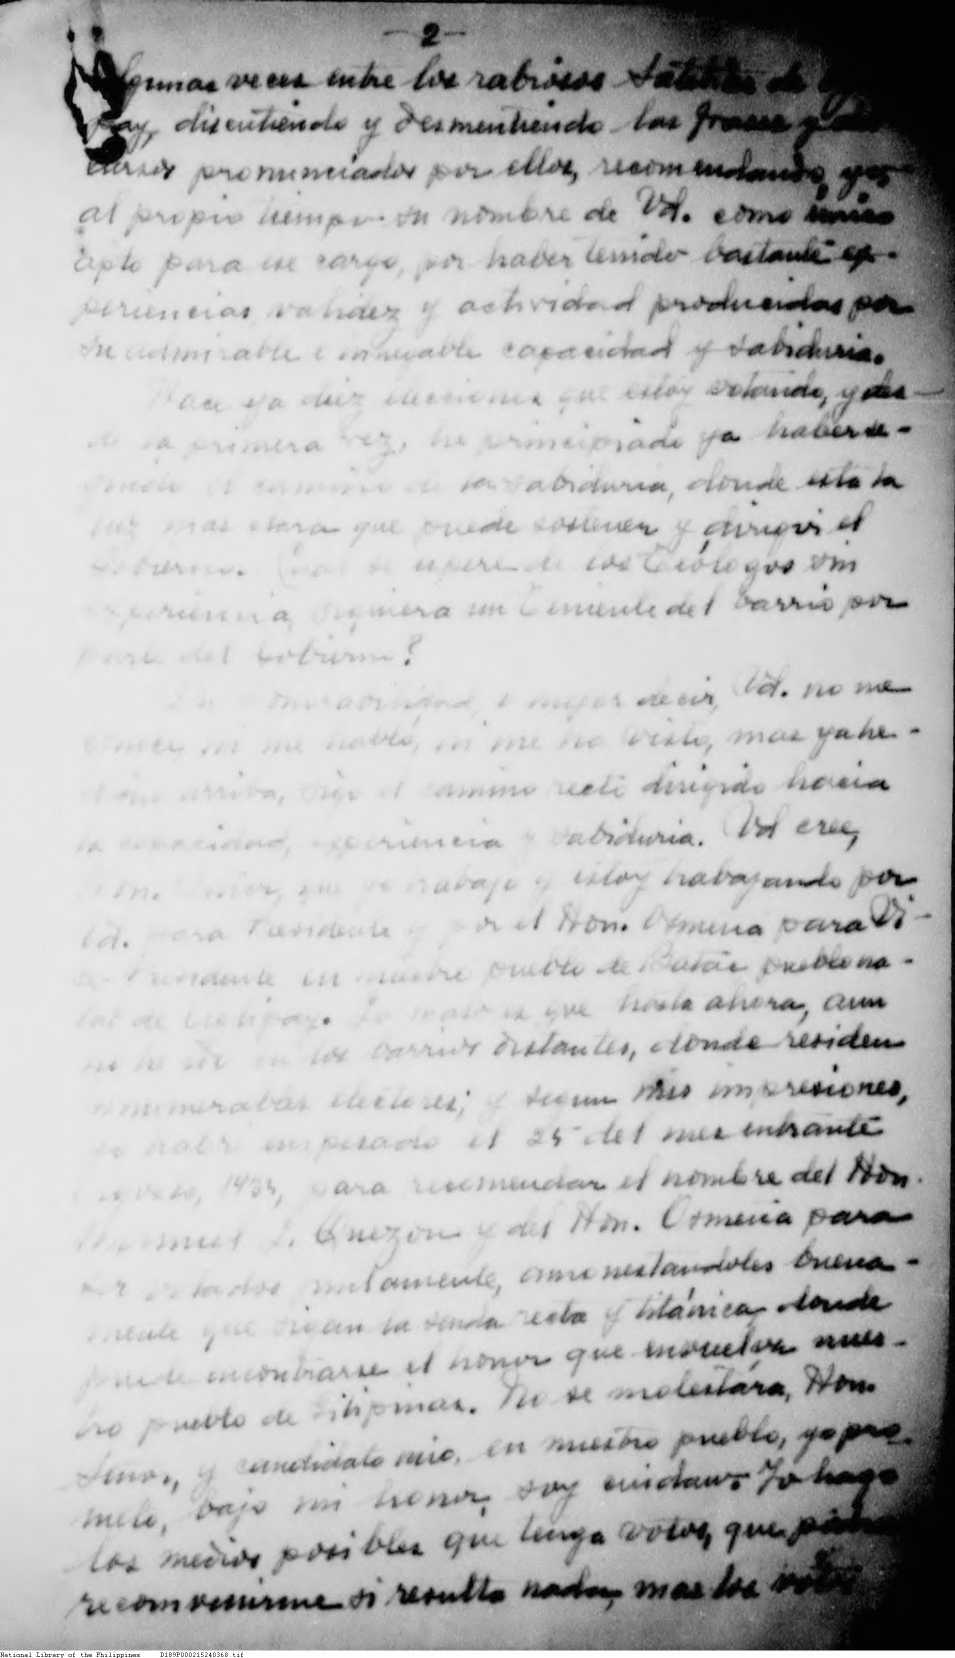 -2-
Algunas veces entre los rabiosos Satelites de
pay, discutiendo y desmentiendo las frases y
cursos pronunciados por ellos, recomendando, yo,
al propio tiempo su nombre de Vd. como unico
apto para ese cargo, por haber tenido bastante ex-
periencias, validez y actividad producidas por
su admirable e capacidad y sabiduria.
Hace ya diez elecciones que estoy votando, y des-
de la primera vez, he principiado ya haber se-
el camino de la sabiduria, donde esta la
luz mas clara que puede sostener y dirigir el
Gobierno. se espere de los Teólogos sin
experiencia, siquiera un Teniente del barrio por
parte del Gobierno?
o mejor decir, Vd. no me
conoce, ni me habló, ni me ha visto, mas ya he
arriba, sigo el camino recto dirigido hacia
la capacidad, experiencia y sabiduria. Vd cree,
Hon. Señor, que yo trabajo y estoy trabajando por
Vd. para Presidente y por el Hon. Osmeña para Vi-
ce-Presidente en nuestro pueblo de Batac pueblo na-
tal de Aglipay. Lo malo es que hasta ahora, aun
no he ido en los barrios distantes, donde residen
innumerables electores; y segun mis impresiones,
empesado el 25 del mes entrante
Agosto, 1935, para recomendar el nombre del Hon.
Manuel L. Quezon y del Hon. Osmeña para
ser votados juntamente, amonestandoles buena-
mente que sigan la senda recta y titánica, donde
puede encontrarse el honor que envuelva nues-
tro pueblo de Filipinas. No se molestara, Hon.
Señor, y candidato mio, en nuestro pueblo, yo pro-
meto, bajo mi honor, soy cuidaw. Yo hago
los medios posibles que tenga votos, que
reconvenirme si resulta nada, mas los votos
National Library of the Philippines D189P000215240368.tif